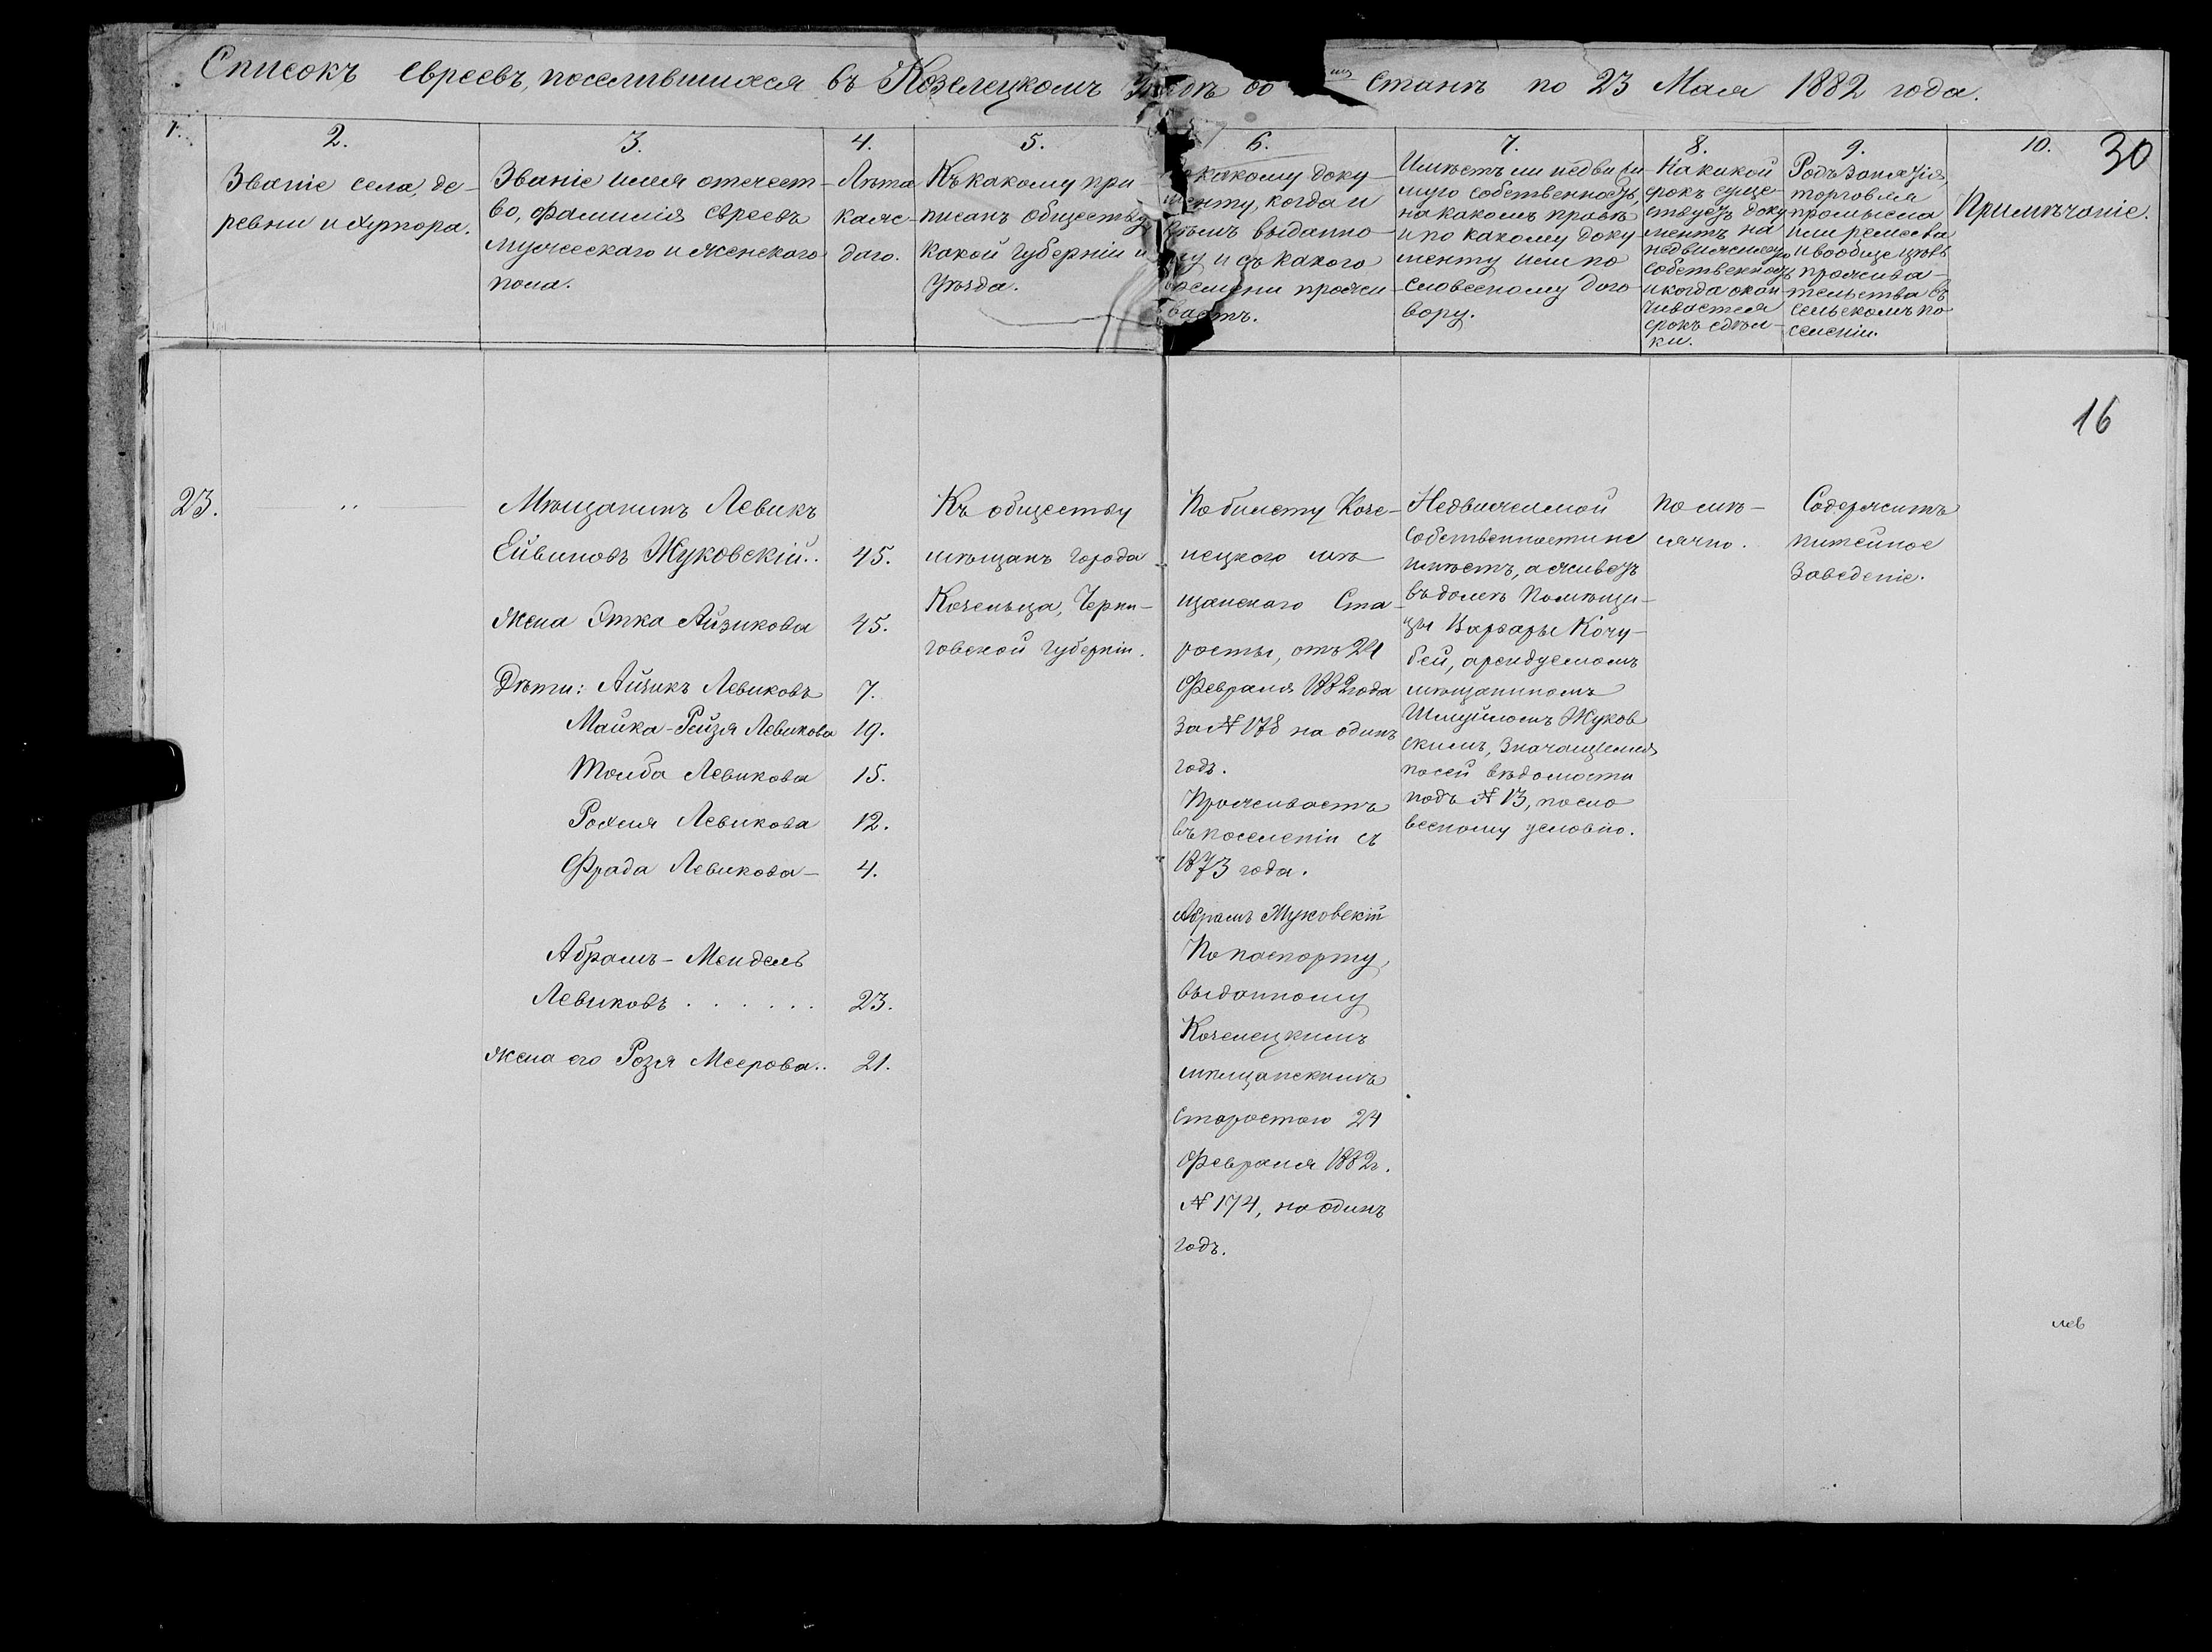 Списокъ евреевъ, поселившихся въ Козелецкомъ Уѣздѣ во станѣ по 23 Мая 1882 года.
1.
2.
Званіе села, де-
ревни и хутора.
3.
Званіе имя отечест-
во, фамилія евреевъ
мужескаго и женскаго
пола.
4.
Лѣта
каж-
даго.
5.
Къ какому при-
писанъ обществу
какой губерніи и
уѣзда.
6.
По какому доку-
менту, когда и
кѣмъ выданно-
му и съ какого
времени прожи-
ваетъ.
7.
Имѣетъ ли недвижи-
мую собственность,
на какомъ правѣ
и по какому доку-
менту или по
словесному дого-
вору.
8.
На какой
срокъ суще-
ствуетъ доку
ментъ на
недвижимую
собственность
и когда окан-
чивается
срокъ сдѣл-
ки.
9.
Родъ занятія,
торговля
промысла
или ремесла
и вообще цѣль
прожива-
тельства въ
сельскомъ по
селеніи.
10.
Примѣчаніе.
30
16
23.
"
Мѣщанинъ Левикъ
Ейвиновъ Жуковскій.. 45.
Жена Этка Айзикова 45.
Дѣти: Айзикъ Левиковъ 7.
Майка-Рейзя Левикова 19.
Тоиба Левикова 15.
Рохля Левикова 12.
Фрада Левикова- 4.
Абрамъ-Мендель
Левиковъ . . . . . . 23.
жена его Розя Меерова.. 21.
Къ обществу
мѣщанъ города
Козельца, Черни-
говской губерніи.
По билету Козе-
лецкого мѣ
щанскаго Ста-
росты, отъ 24
Февраля 1882 года
за № 178 на одинъ
годъ.
Проживаетъ
въ поселеніи съ
1873 года.
Абрамъ Жуковскій
По паспорту,
выданному
Козелецкимъ
мѣщанскимъ
старостою 24
Февраля 1882 г.
№ 174, на одинъ
годъ.
Недвижимой
собственности не
имѣетъ, а живетъ
въ домѣ Помѣщи-
цы Варвары Кочу-
бей, арендуемомъ
мѣщаниномъ
Шмуйломъ Жуков
скимъ, значащемся
по сей вѣдомости
подъ № 13, по сло
весному условію.
По мѣ-
сячно.
Содержитъ
питейное
заведеніе.
лев